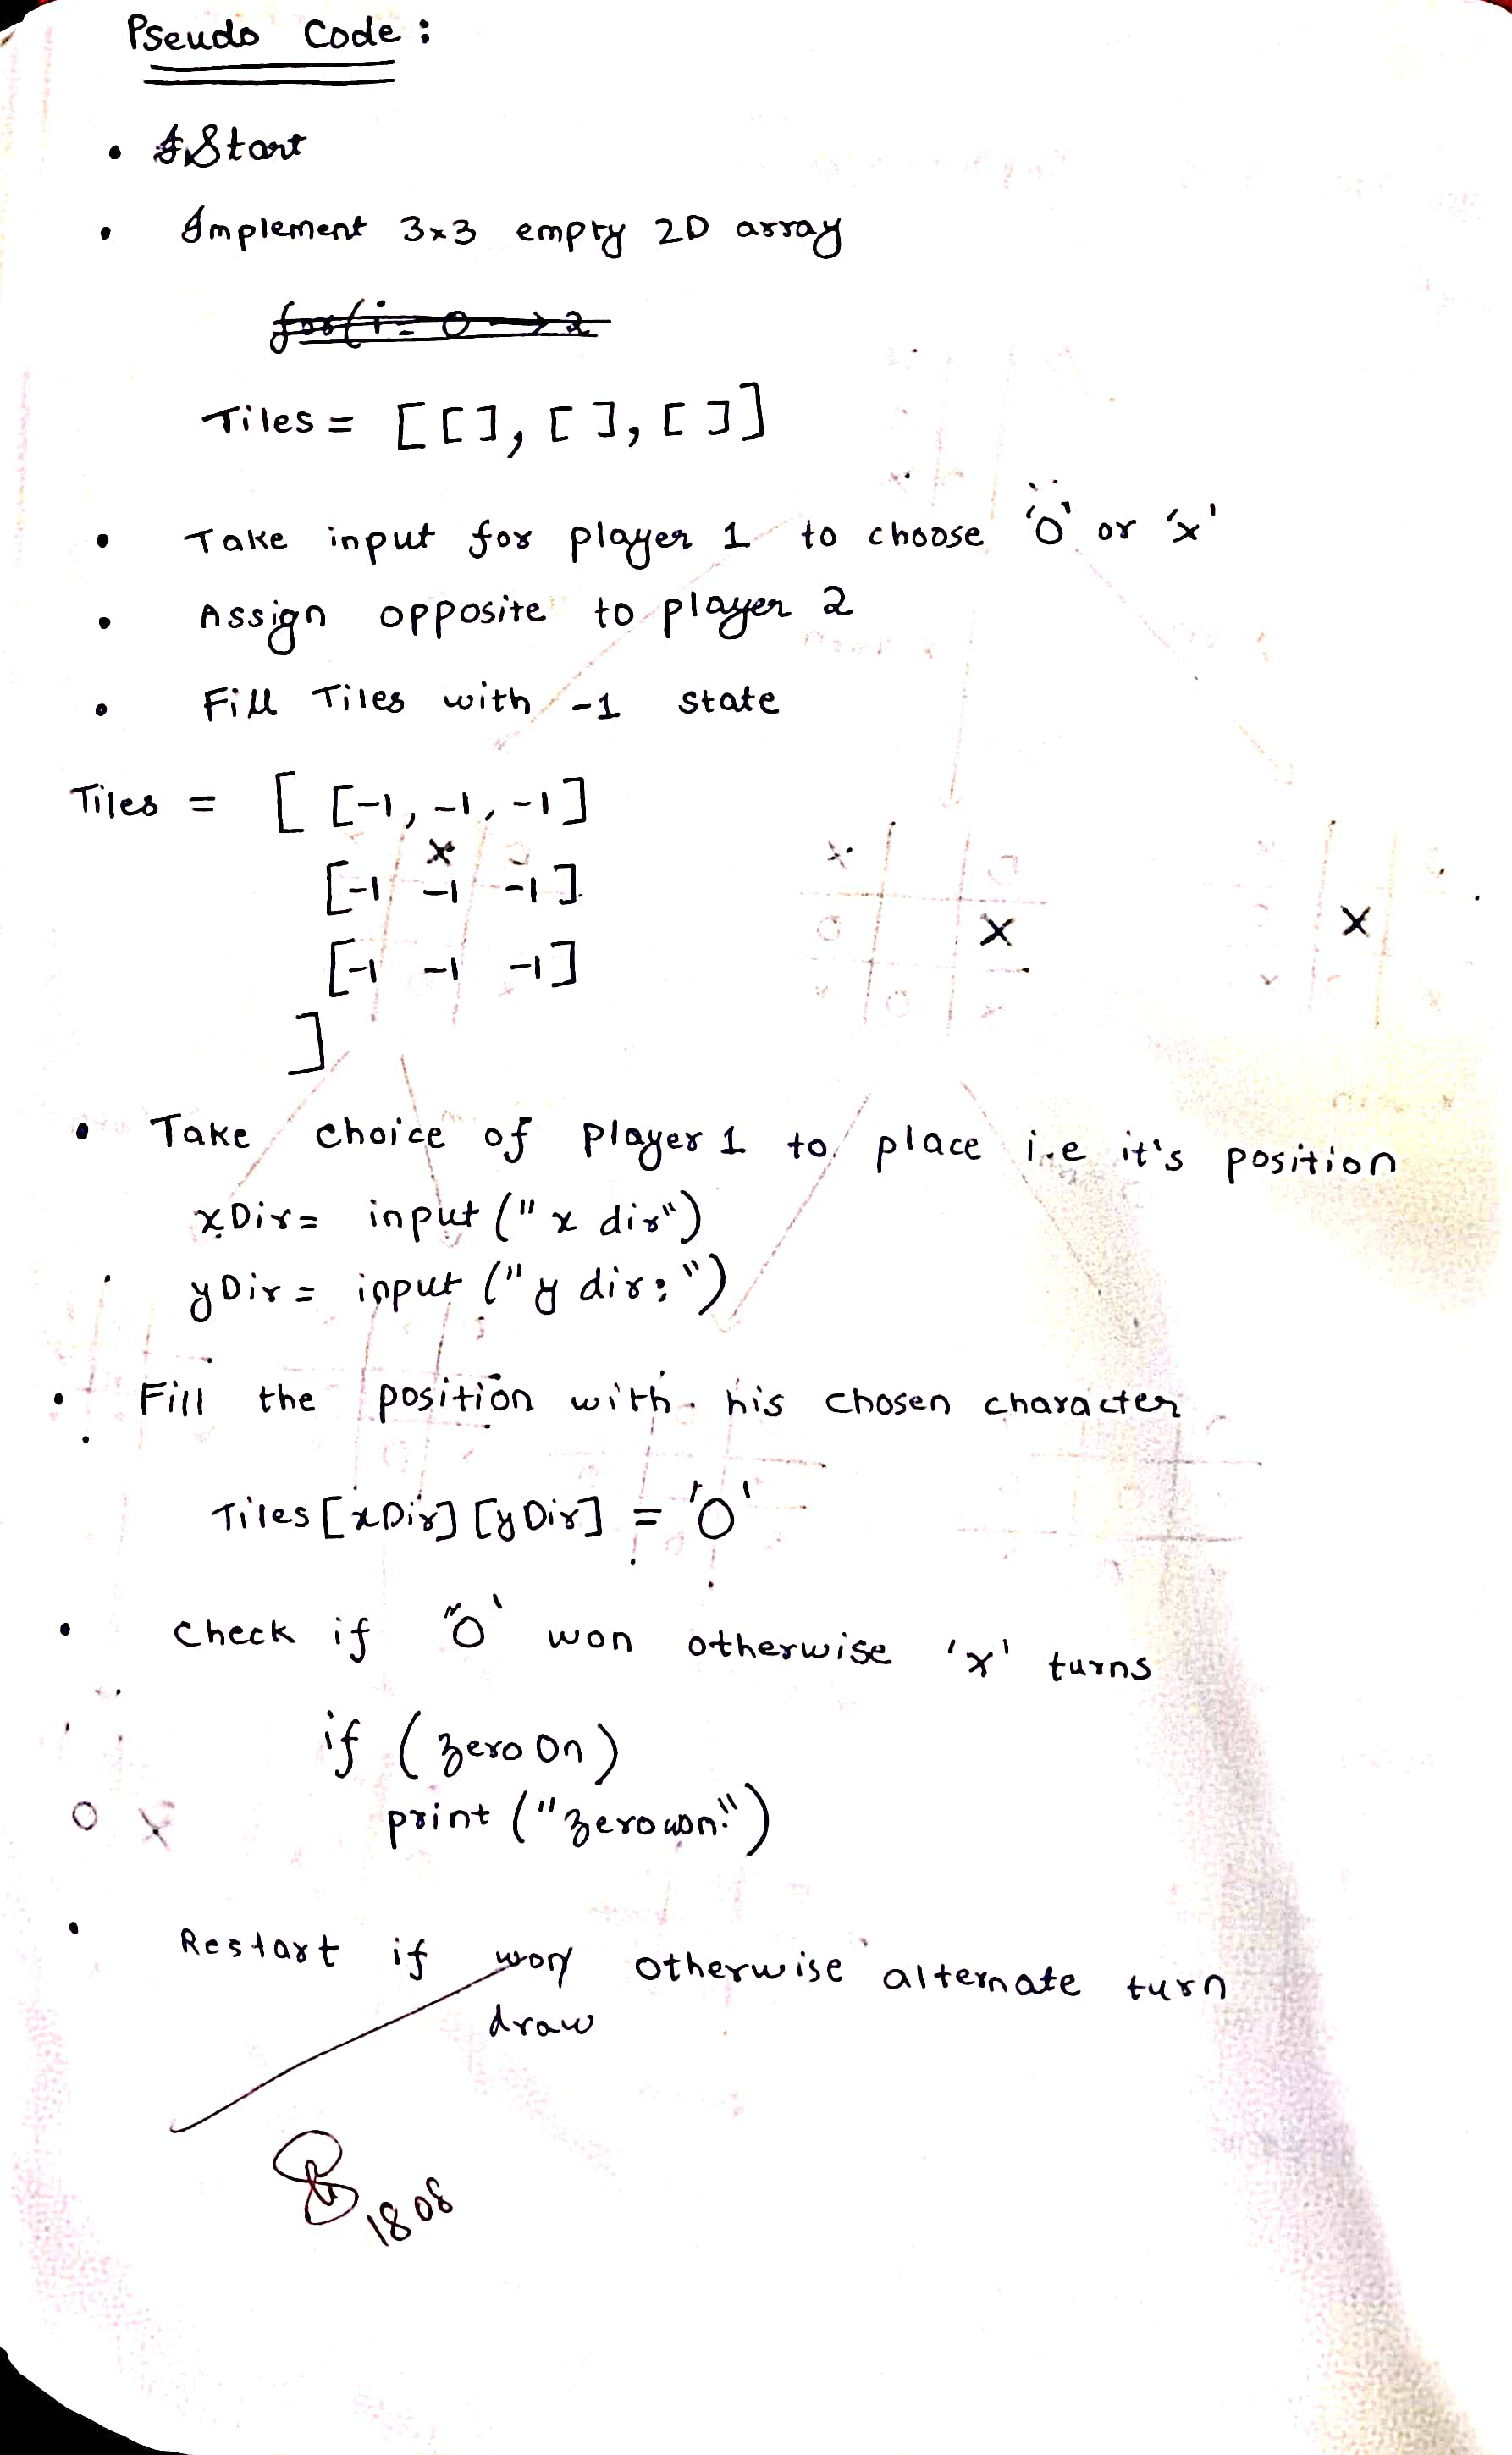 Pseudo Code :
• Start
• Implement 3x3 empty 2D array
for(i = 0 → 2
Tiles = [[], [ ], [ ]]
• Take input for player 1 to choose 'O' or 'x'
• Assign opposite to player 2
• Fill Tiles with -1 state
Tiles = [ [-1, -1, -1]
x
[-1 -1 -1]
[-1 -1 -1]
]
X
X
• Take choice of player 1 to place i.e it's position
xDir = input (" x dir")
yDir = input ("y dir: ")
• Fill the position with his chosen character
Tiles [xDir] [yDir] = 'O'
• Check if 'O' won otherwise 'x' turns
if ( zero on )
print ("zero won!")
O X
• Restart if won otherwise alternate turn
draw
1808